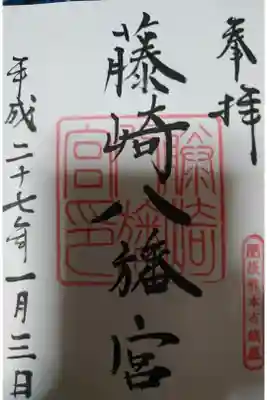 奉拝
藤崎八旛宮
平成二十七年一月三日